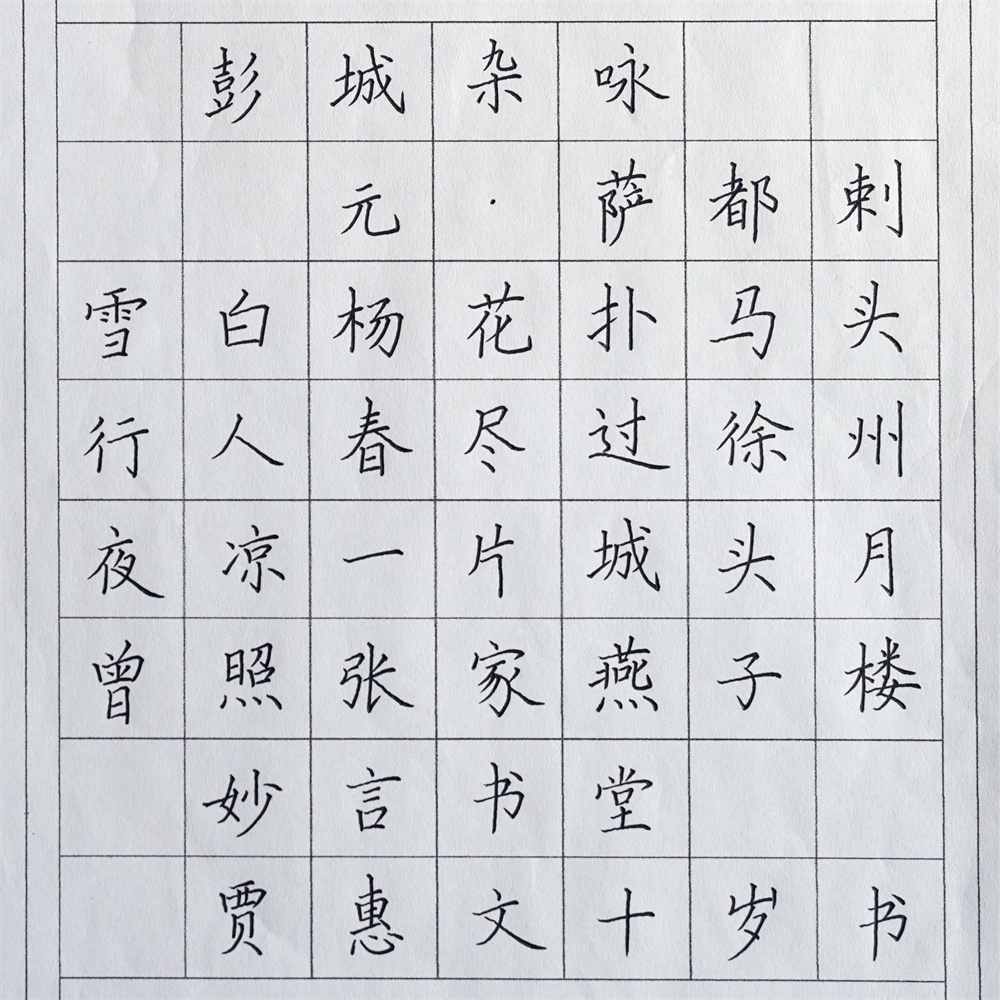 彭城杂咏
元·萨都剌
雪白杨花扑马头
行人春尽过徐州
夜凉一片城头月
曾照张家燕子楼
妙言书堂
贾惠文十岁书